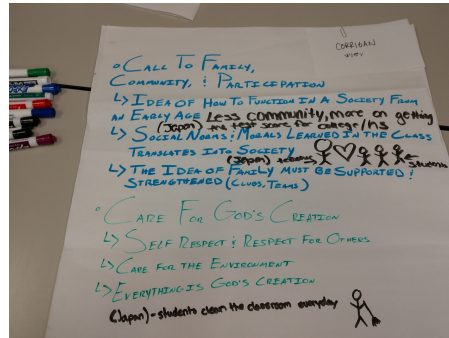 CORRIGAN
o CALL TO FAMILY,
COMMUNITY, & PARTICIPATION
↳ IDEA OF HOW TO FUNCTION IN A SOCIETY FROM
AN EARLY AGE Less community, more on getting
(Japan) the test score for college/HS
↳ SOCIAL NORMS & MORALS LEARNED IN THE CLASS
TRANSLATES INTO SOCIETY (Japan) teachers students
↳ THE IDEA OF FAMILY MUST BE SUPPORTED &
STRENGTHENED (CLUBS, TEAMS)
o CARE FOR GOD'S CREATION
↳ SELF RESPECT & RESPECT FOR OTHERS
↳ CARE FOR THE ENVIRONMENT
↳ EVERYTHING IS GOD'S CREATION
(Japan) - students clean the classroom everyday